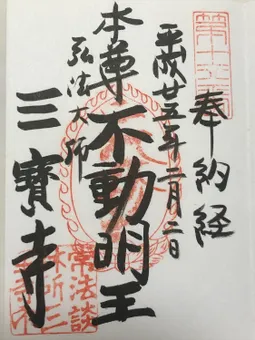 第十六番
奉納経
平成廿五年二月二日
本尊不動明王
弘法大師
三寳寺